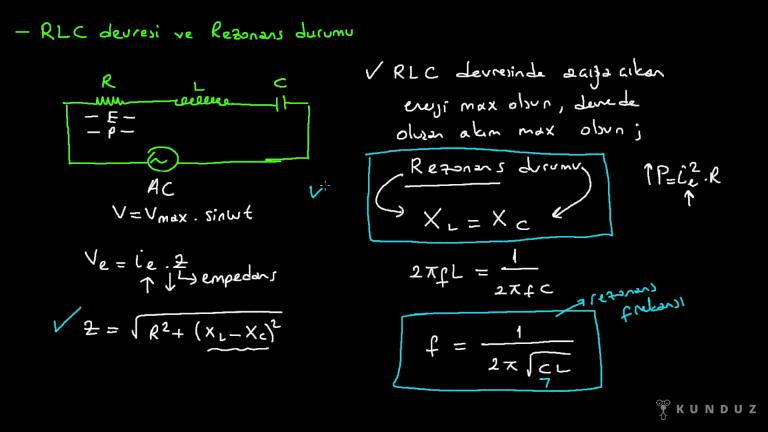 - RLC devresi ve Rezonans durumu
R L C
- E -
- P -
AC
V = Vmax . sinwt
Ve = ie . z
empedans
z = √R² + (XL - XC)²
✓ RLC devresinde açığa çıkan
enerji max olsun, devrede
oluşan akım max olsun ;
Rezonans durumu
XL = XC
↑P = ie² . R
2πfL = 1 / 2πfC
rezonans
frekansı
f = 1 / 2π√CL
KUNDUZ